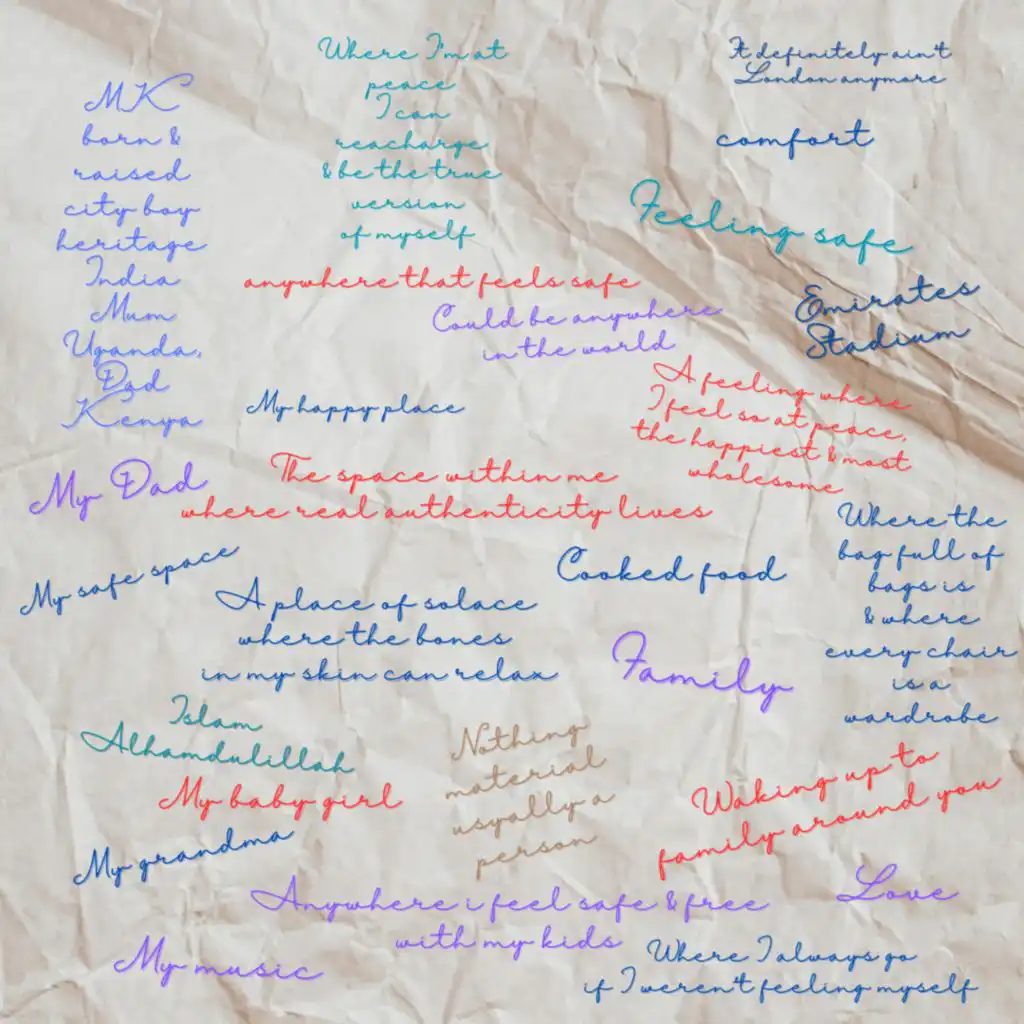 Where I'm at
peace
I can
reacharge
& be the true
version
of myself
It definitely ain't
London anymore
MK
born &
raised
city boy
heritage
India
Mum
Uganda,
Dad
Kenya
comfort
Feeling safe
anywhere that feels safe
Could be anywhere
in the world
Emirates
Stadium
My happy place
A feeling where
I feel so at peace,
the happiest & most
wholesome
My Dad
The space within me
where real authenticity lives
Where the
bag full of
bags is
& where
every chair
is a
wardrobe
My safe space
Cooked food
A place of solace
where the bones
in my skin can relax
Family
Islam
Alhamdulillah
Nothing
material
usyally a
person
My baby girl
Waking up to
family around you
My grandma
Anywhere i feel safe & free
with my kids
Love
My music
Where I always go
if I weren't feeling myself